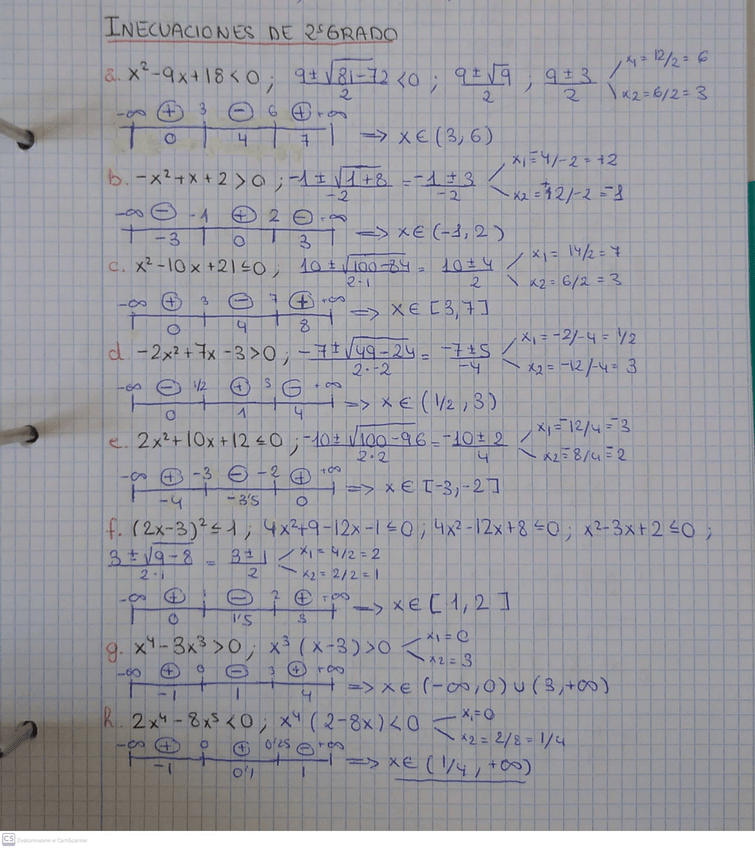 INECUACIONES DE 2º GRADO
a. x²-9x+18<0; 9±√81-72/2 <0; 9±√9/2; 9±3/2 x₁=12/2=6
x₂=6/2=3
-∞ ⊕ 3 ⊖ 6 ⊕ +∞
0 4 7 => x∈(3,6)
b. -x²+x+2>0; -1±√1+8/-2 = -1±3/-2 x₁=-4/-2=+2
-∞ ⊖ -1 ⊕ 2 ⊖ +∞
-3 0 3 => x∈(-1,2)
c. x²-10x+21≤0, 10±√100-84/2·1 = 10±4/2 x₁=14/2=7
x₂=6/2=3
-∞ ⊕ 3 ⊖ 7 ⊕ +∞
0 4 8 => x∈[3,7]
d. -2x²+7x-3>0; -7±√49-24/2·-2 = -7±5/-4 x₁=-2/-4=1/2
x₂=-12/-4=3
-∞ ⊖ 1/2 ⊕ 3 ⊖ +∞
0 1 4 => x∈(1/2,3)
e. 2x²+10x+12≤0; -10±√100-96/2·2 = -10±2/4 x₁=-12/4=-3
x₂=-8/4=-2
-∞ ⊕ -3 ⊖ -2 ⊕ +∞
-4 -3'5 0 => x∈[-3,-2]
f. (2x-3)²≤1; 4x²+9-12x-1≤0; 4x²-12x+8≤0; x²-3x+2≤0;
3±√9-8/2·1 = 3±1/2 x₁=4/2=2
x₂=2/2=1
-∞ ⊕ 1 ⊖ 2 ⊕ +∞
0 1'5 3 => x∈[1,2]
g. x⁴-3x³>0; x³(x-3)>0 x₁=0
x₂=3
-∞ ⊕ 0 ⊖ 3 ⊕ +∞
-1 1 4 => x∈(-∞,0)∪(3,+∞)
h. 2x⁴-8x⁵<0; x⁴(2-8x)<0 x₁=0
x₂=2/8=1/4
-∞ ⊕ 0 ⊕ 0'25 ⊖ +∞
-1 0'1 1 => x∈(1/4,+∞)
CS